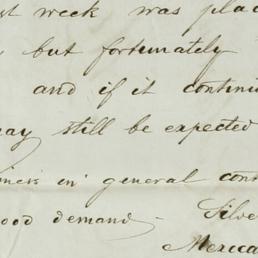 st week was plac
but fortunately
and if it continu
may still be expected
iness in general cont
good demand - Silve
Mexica